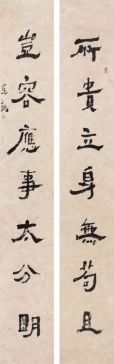 所貴立身無苟且
豈容應事太分明